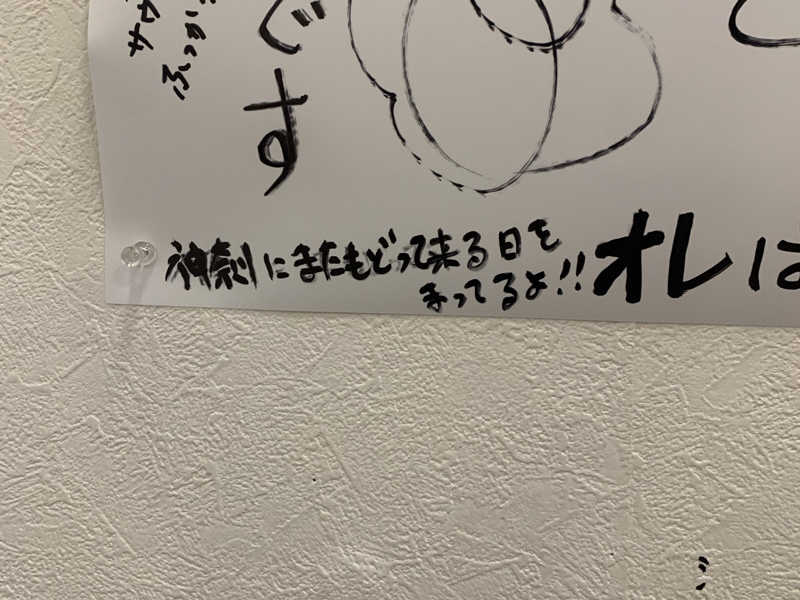 サウ
ふっか
です
神奈川にまたもどって来る日を
まってるよ!!
オレは